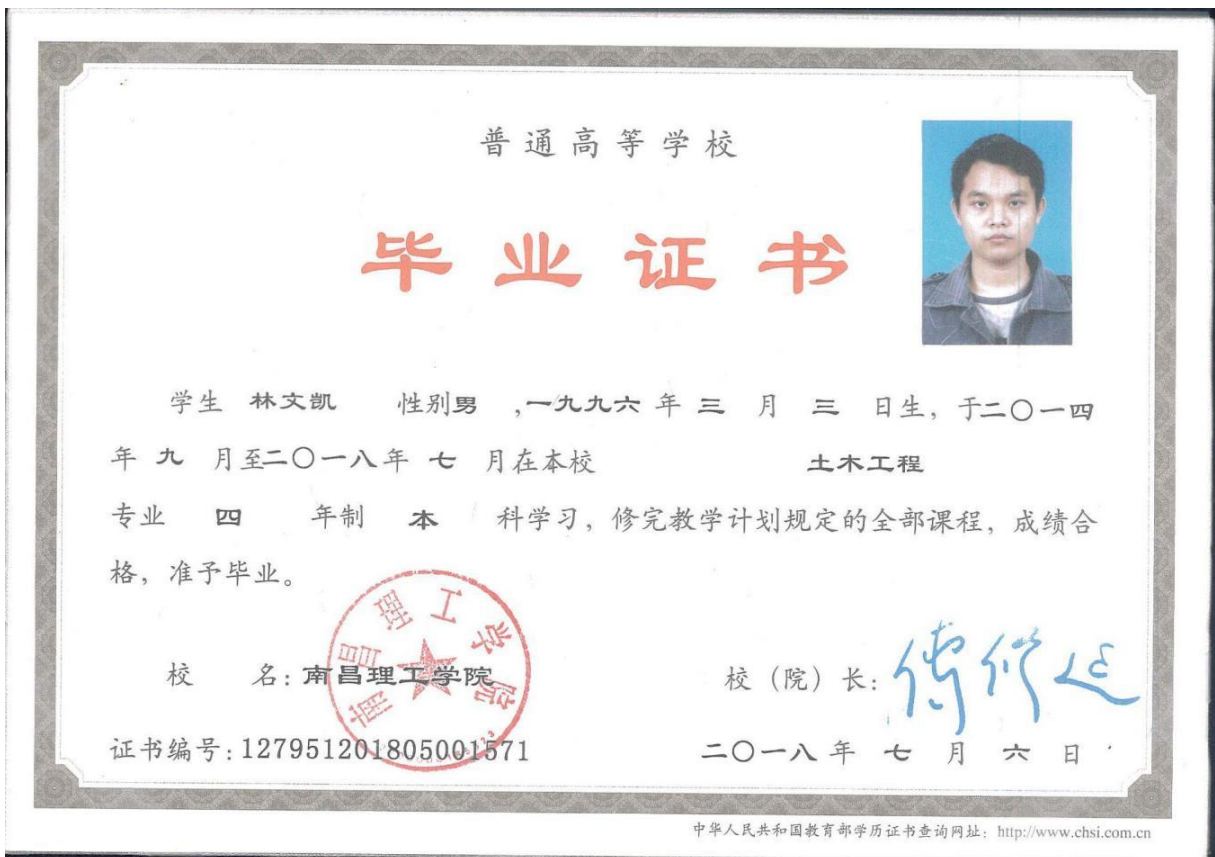 普通高等学校
毕业证书
学生 林文凯 性别男 ,一九九六 年 三 月 三 日生，于二〇一四
年 九 月至二〇一八年 七 月在本校 土木工程
专业 四 年制 本 科学习，修完教学计划规定的全部课程，成绩合
格，准予毕业。
南昌理工学院
校 名：南昌理工学院 校（院）长：
证书编号：127951201805001571 二〇一八年 七 月 六 日
中华人民共和国教育部学历证书查询网址：http://www.chsi.com.cn